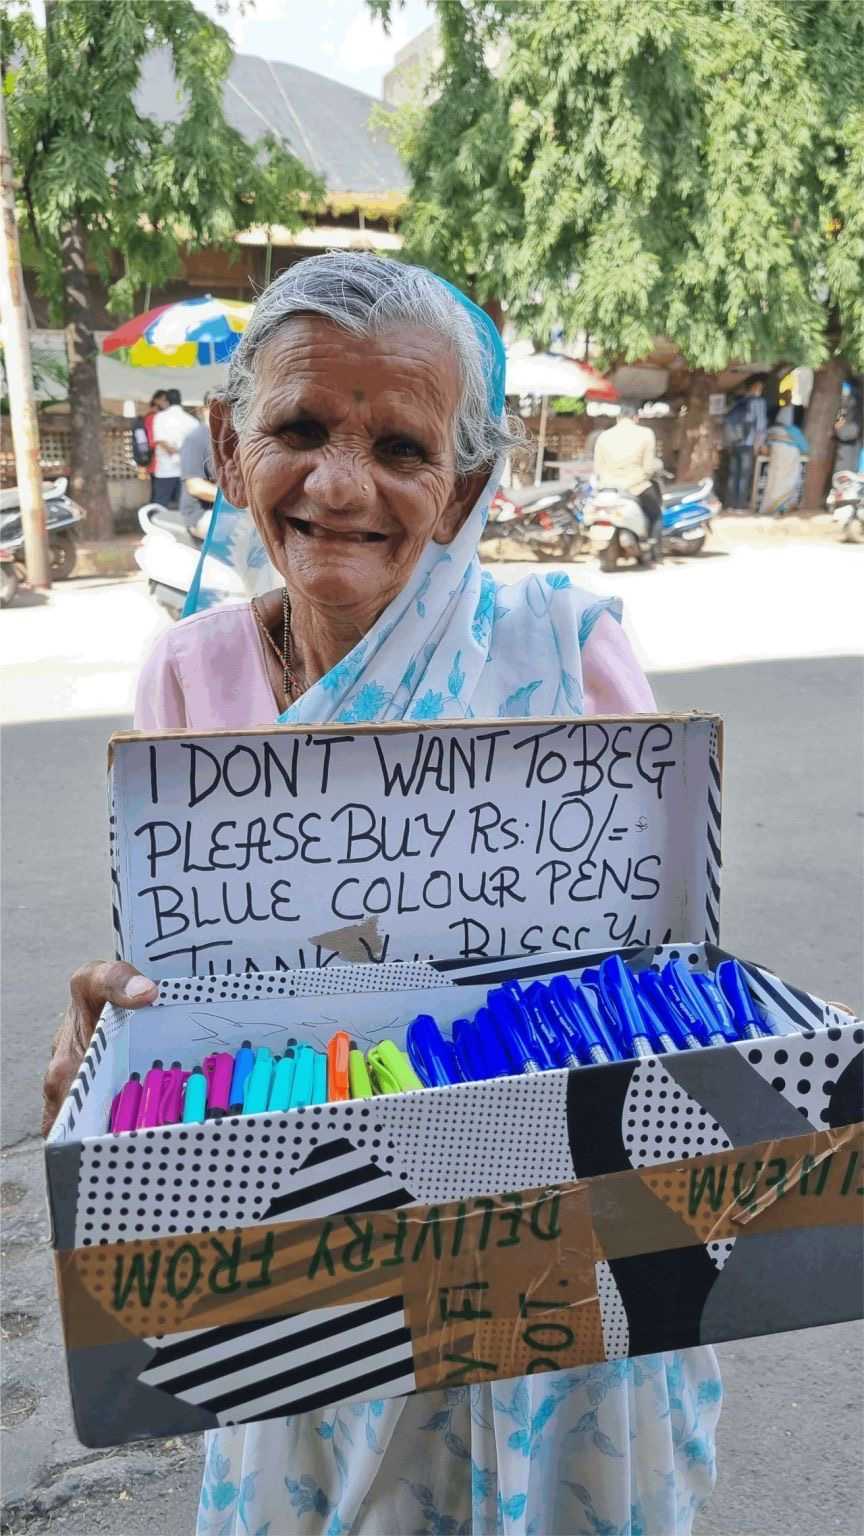 I DON'T WANT TO BEG
PLEASE BUY Rs: 10/=
BLUE COLOUR PENS
THANK You BLESS You
DELIVERY FROM
DELIVERY FROM